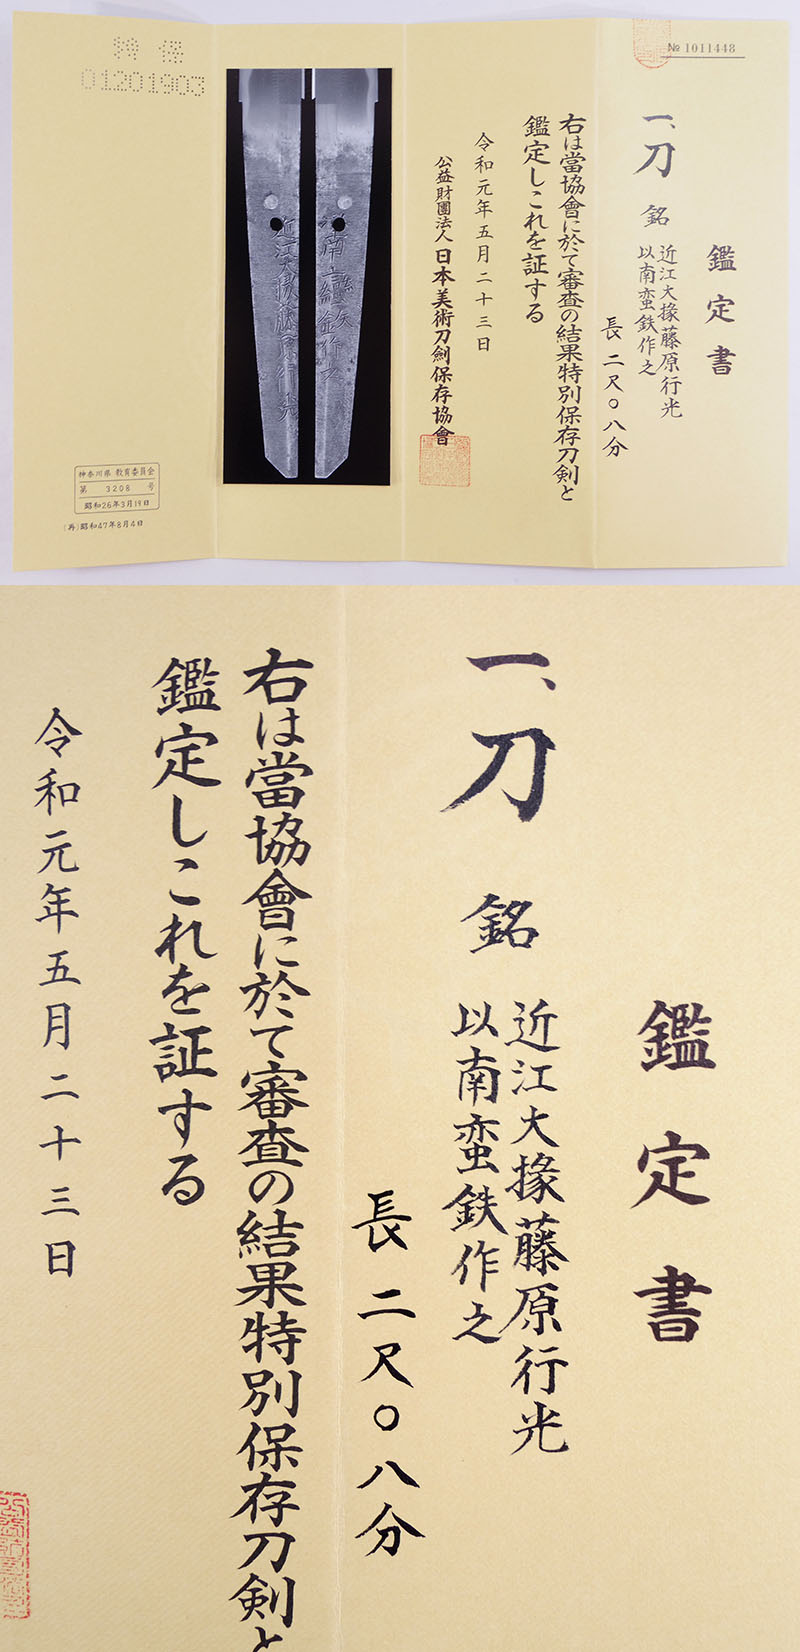 № 1011448
鑑定書
一、刀 銘 近江大掾藤原行光
以南蛮鉄作之
長 二尺〇八分
右は當協會に於て審査の結果特別保存刀剣と
鑑定しこれを証する
令和元年五月二十三日
公益財團法人 日本美術刀劍保存協會
特保
01201903
近江大掾藤原行光
神奈川県 教育委員会
第 3208 号
昭和26年3月19日
(再)昭和47年8月4日
鑑定書
一、刀 銘 近江大掾藤原行光
以南蛮鉄作之
長 二尺〇八分
右は當協會に於て審査の結果特別保存刀剣と
鑑定しこれを証する
令和元年五月二十三日